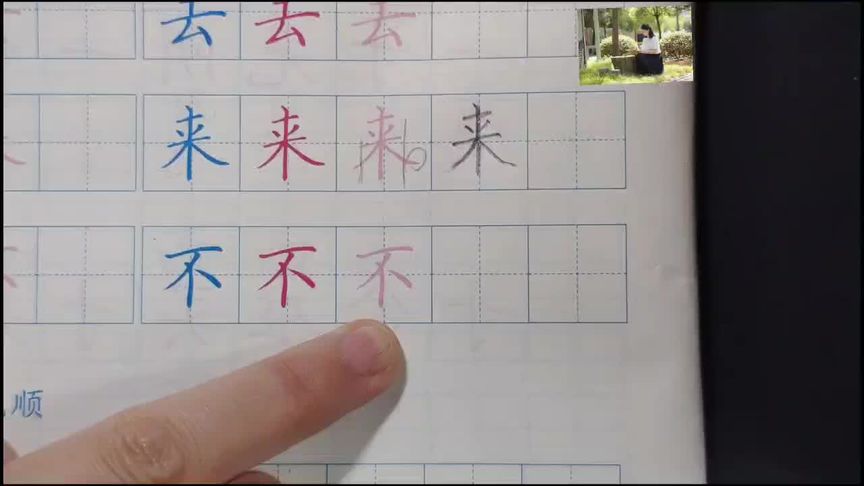 去 去 去
来 来 来 来
不 不 不
顺